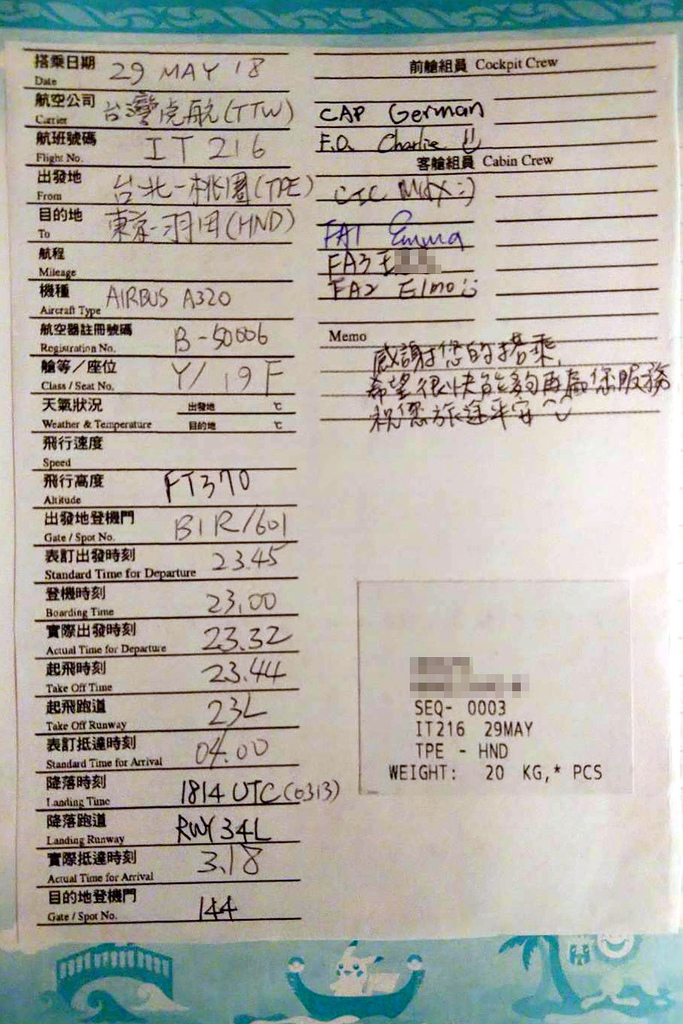 搭乘日期 29 MAY '18
Date
航空公司 台灣虎航(TTW)
Carrier
航班號碼 IT 216
Flight No.
出發地 台北-桃園(TPE)
From
目的地 東京-羽田(HND)
To
航程
Mileage
機種 AIRBUS A320
Aircraft Type
航空器註冊號碼 B-50006
Registration No.
艙等/座位 Y/19F
Class / Seat No.
天氣狀況 出發地 ℃
Weather & Temperature 目的地 ℃
飛行速度
Speed
飛行高度 FT370
Altitude
出發地登機門 B1R/601
Gate / Spot No.
表訂出發時刻 23.45
Standard Time for Departure
登機時刻 23.00
Boarding Time
實際出發時刻 23.32
Actual Time for Departure
起飛時刻 23.44
Take Off Time
起飛跑道 23L
Take Off Runway
表訂抵達時刻 04.00
Standard Time for Arrival
降落時刻 1814 UTC(0313)
Landing Time
降落跑道 RWY 34L
Landing Runway
實際抵達時刻 3.18
Actual Time for Arrival
目的地登機門 144
Gate / Spot No.
前艙組員 Cockpit Crew
CAP German
F.O. Charlie
客艙組員 Cabin Crew
CIC Max :)
FA1 Emma
FA3
FA2 Elmo
Memo
感謝您的搭乘,
希望很快能夠再為您服務
祝您旅途平安~
SEQ- 0003
IT216 29MAY
TPE - HND
WEIGHT: 20 KG,* PCS